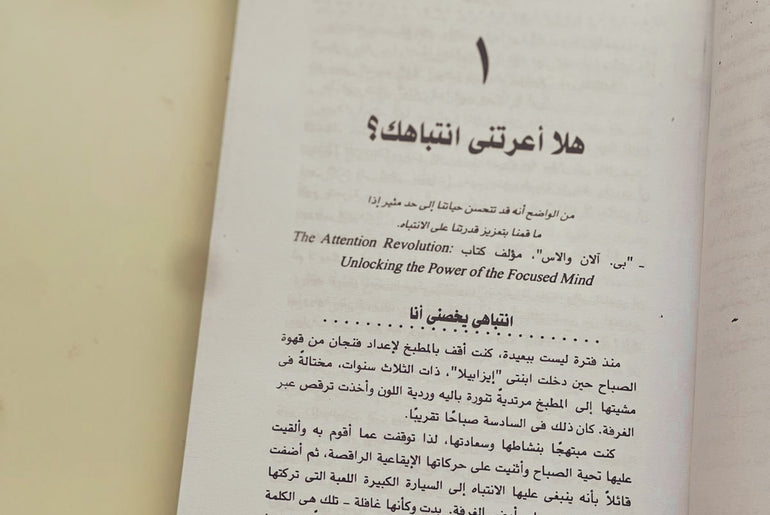 ١
هلا أعرتنى انتباهك؟
من الواضح أنه قد تتحسن حياتنا إلى حد مثير إذا
ما قمنا بتعزيز قدرتنا على الانتباه.
ـ "بى. آلان والاس"، مؤلف كتاب The Attention Revolution:
Unlocking the Power of the Focused Mind
انتباهي يخصني أنا
منذ فترة ليست ببعيدة، كنت أقف بالمطبخ لإعداد فنجان من قهوة
الصباح حين دخلت ابنتى "إيزابيلا"، ذات الثلاث سنوات، مختالةً فى
مشيتها إلى المطبخ مرتديةً تنورة باليه وردية اللون وأخذت ترقص عبر
الغرفة. كان ذلك فى السادسة صباحًا تقريبًا.
كنت مبتهجًا بنشاطها وسعادتها، لذا توقفت عما أقوم به وألقيت
عليها تحية الصباح وأثنيت على حركاتها الإيقاعية الراقصة، ثم أضفت
قائلاً بأنه ينبغى عليها الانتباه إلى السيارة الكبيرة اللعبة التى تركتها
الغرفة. بدت وكأنها غافلة – تلك هى الكلمة